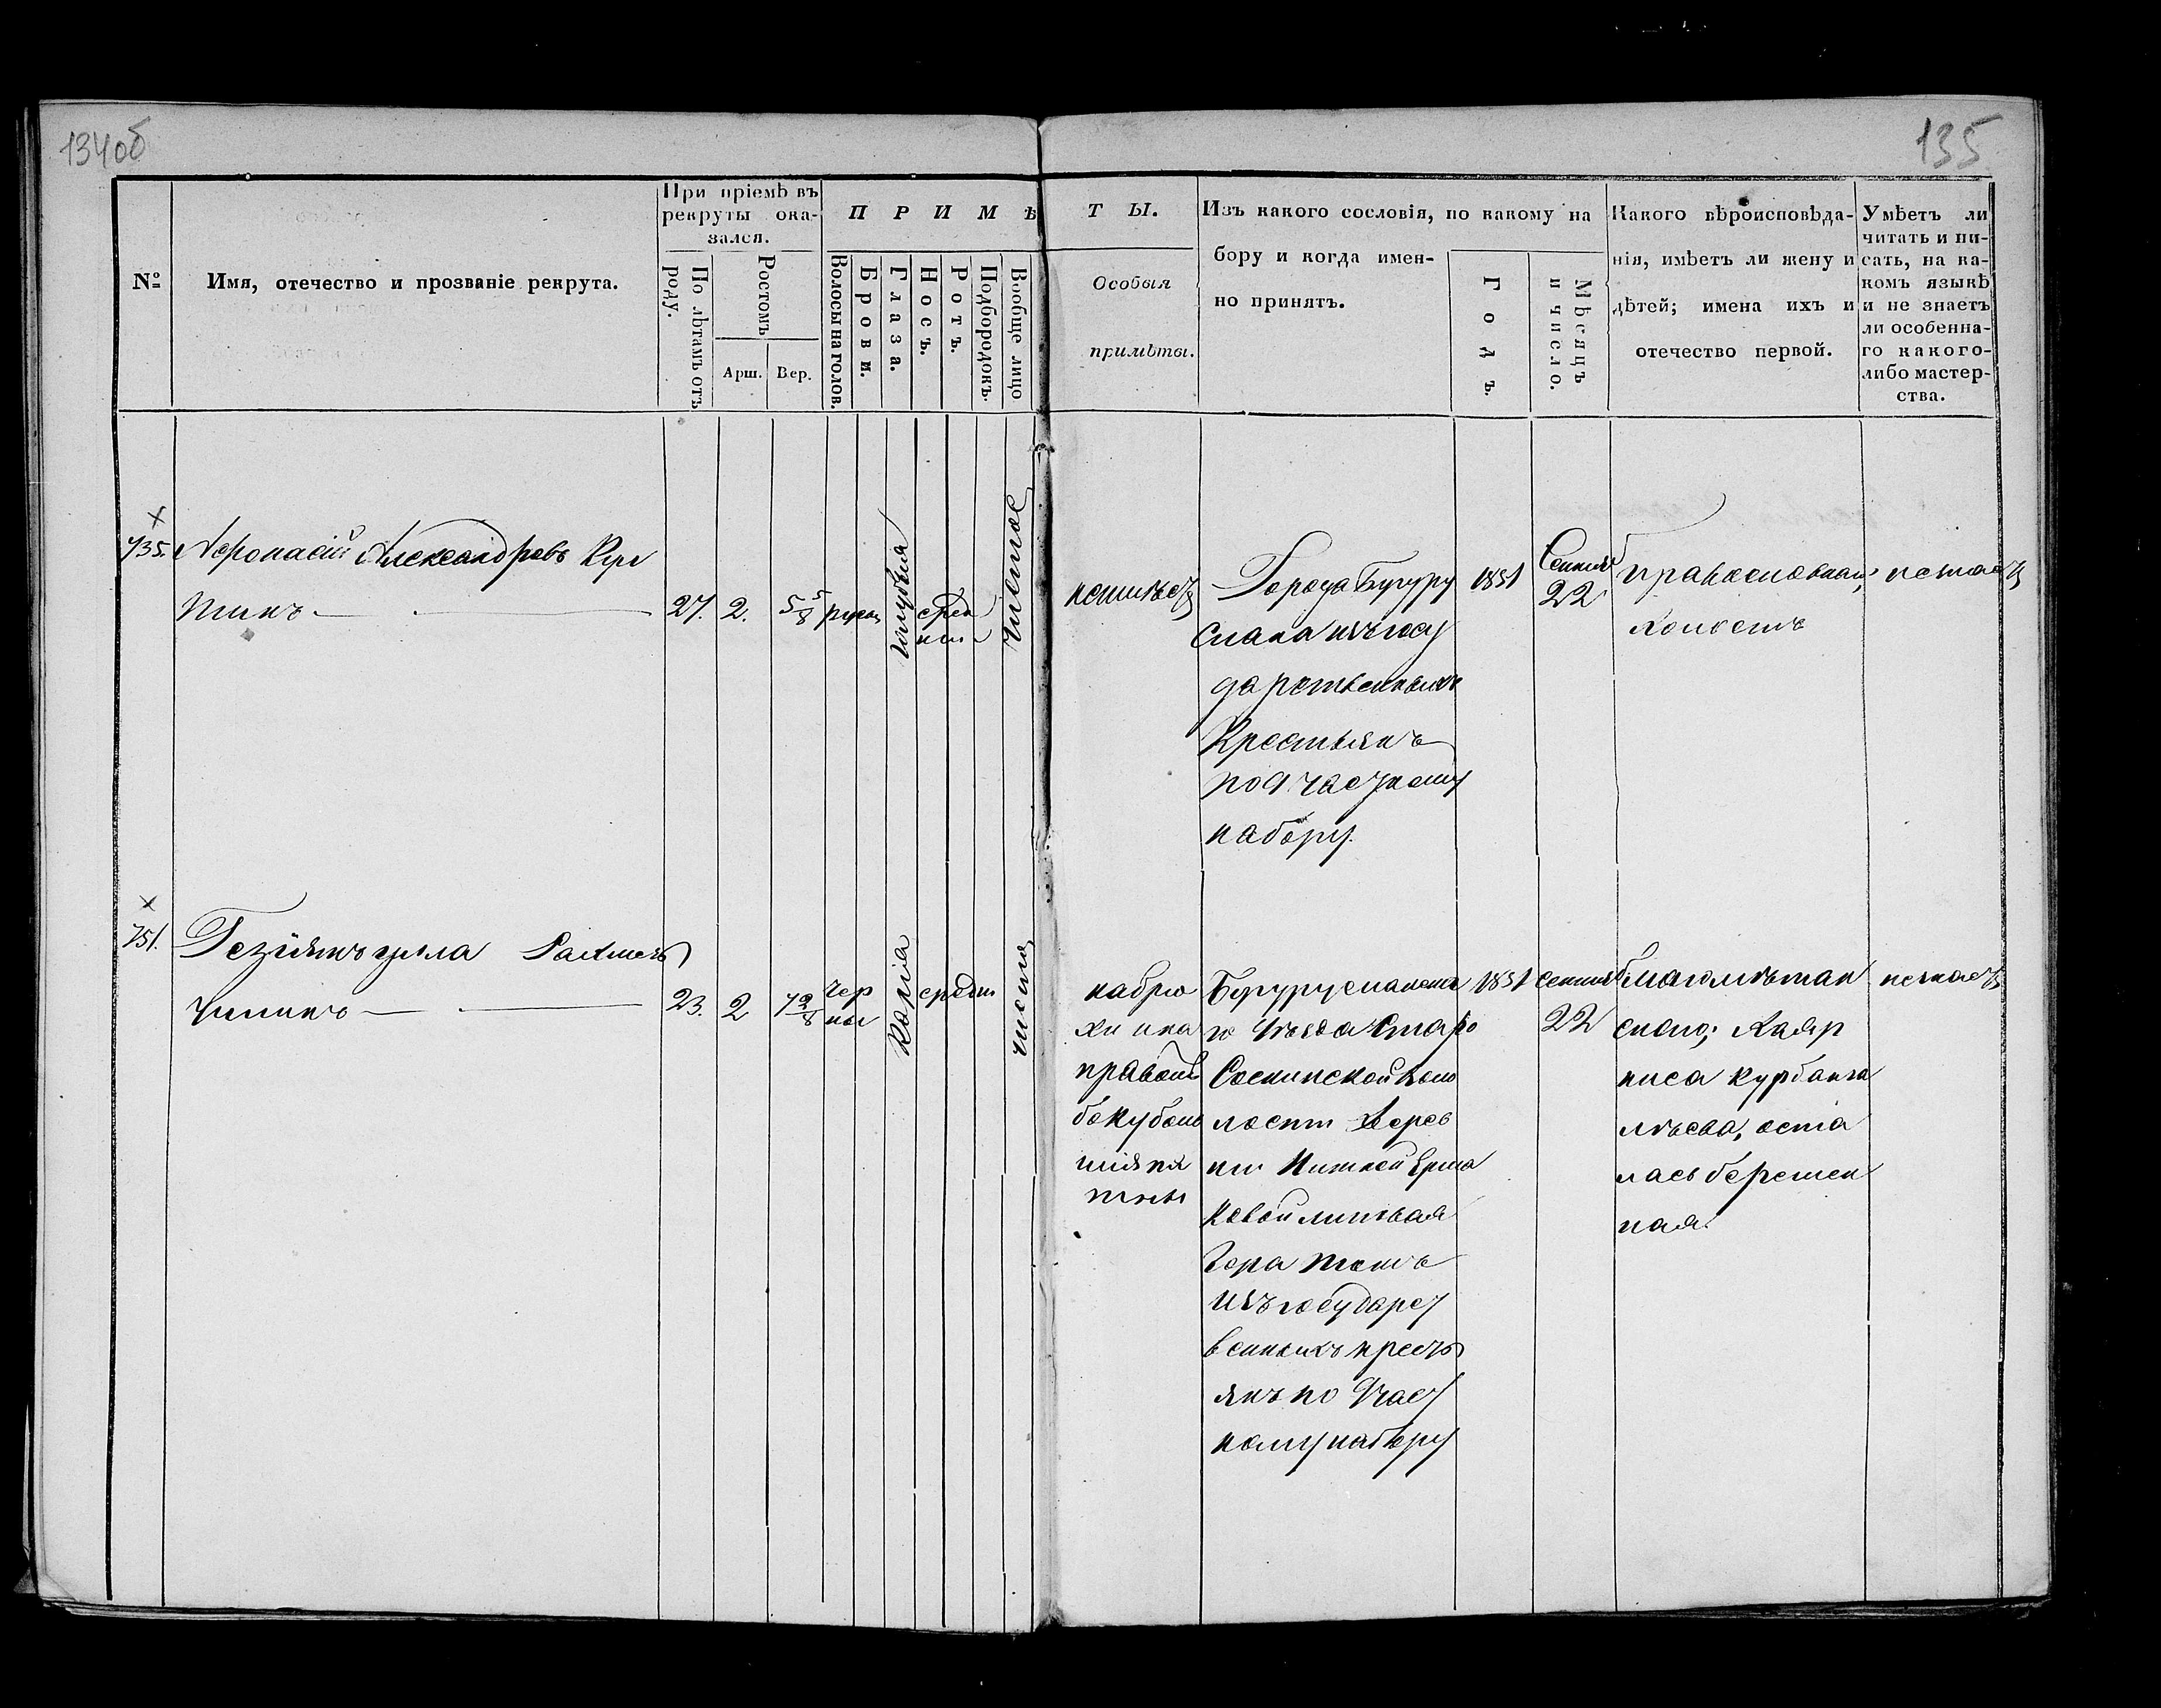 134об
135
№
Имя, отечество и прозваніе рекрута.
При пріемѣ въ
рекруты ока-
зался.
По лѣтамъ отъ
роду.
Ростомъ
Арш.
Вер.
ПРИМѢ
Волосы на голов.
Брови.
Глаза.
Носъ.
Ротъ.
Подбородокъ.
Вообще лицо
ТЫ.
Особыя
примѣты.
Изъ какого сословія, по какому на
бору и когда имен-
но принятъ.
Годъ.
Мѣсяцъ
и число.
Какого вѣроисповѣда-
нія, имѣетъ ли жену и
дѣтей; имена ихъ и
отечество первой.
Умѣетъ ли
читать и пи-
сать, на ка-
комъ языкѣ
и не знаетъ
ли особенна-
го какого-
либо мастер-
ства.
735.
Афонасій Александровъ
27.
2.
5 5/8
русы
голубыя
сред
ніи
чистое
неимѣетъ
Города Бугуру
слана изъ госу
дарственныхъ
Крестьянъ
по 9 частному
набору.
1851
Сентяб
22
Православнаго,
холостъ
незнаетъ
751.
23.
2
7 2/8
чер
ны
Каріа
средн
чисто
на брю
хи и на
правом
боку боль
шія пя
тны
Бугурусланска
го Уѣзда Старо
Соснинской Воло
лости Дерев
ни Нижней Ерма
ковой
Гора тожъ
изъ государст
венныхъ кресть
янъ по 9 част
ному набору
1851
сентяб
22
Магомѣтан
скаго;
ниса Курбанга
лѣева, оста
лась беремен
ная.
незнаетъ